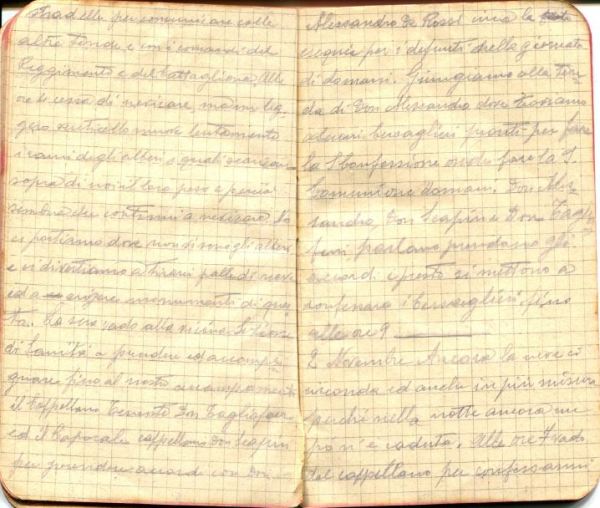 stradelle per comunicare colle
altre tende e coi comandi del
Reggimento e del battaglione. Alle
ore 10 cessa di nevicare, ma un leg-
gero venticello muove lentamente
i rami degli alberi i quali scaricano
sopra di noi il loro peso e perciò
sembra che continui a nevicare. Noi
ci portiamo dove non vi sono gli alberi
e ci divertiamo a tirarci palle di neve
ed a erigere monumenti di que-
sta. La sera vado alla vicina Sezione
di Sanità a prendere ed accompa-
gnare fino al nostro accampamento
il Cappellano Tenente Don Tagliaferri
ed il Caporale cappellano Don Scapin
per prendere accordi con Don
Alessandro De Rossi circa le
esequie per i defunti della giornata
di domani. Giungiamo alla Ten-
da di Don Alessandro dove troviamo
alcuni bersaglieri pronti per fare
la S. Confessione onde fare la S.
Comunione domani. Don Ales-
sandro, Don Scapin e Don Taglia-
ferri parlano prendono gli
accordi e presto si mettono a
confessare i bersaglieri fino
alle ore 9
2 Novembre Ancora la neve ci
circonda ed anche in più misura
perché nella notte ancora un
po' n'è caduta. Alle ore 7 vado
dal cappellano per confessarmi